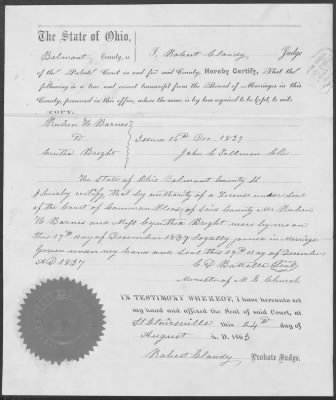 The State of Ohio,
Belmont County, ss I, Robert Clandy, Judge
of the Probate Court in and for said County, Hereby Certify, That the
following is a true and correct transcript from the Record of Marriages in this
County, preserved in this office, where the same is by law required to be kept, to wit:
COPY:
Reuben W Barnes
To
Cynthia Bright
Issued 16th Dec. 1837
John C Tallman Clk
The State of Ohio Belmont County SS
I hereby certify that by authority of a License under Seal
of the Court of Common Pleas of said County Mr. Reuben
W Barnes and Miss Cynthia Bright were by me on
this 17th day of December 1837 legally joined in marriage
Given under my hand and Seal this 29th day of December
A D 1837
C D Battelle Seal
Minister of M. E. Church
IN TESTIMONY WHEREOF, I have hereunto set
my hand and affixed the Seal of said Court, at
St Clairsville this 24th day of
August A. D. 1863
Robert Clandy Probate Judge.